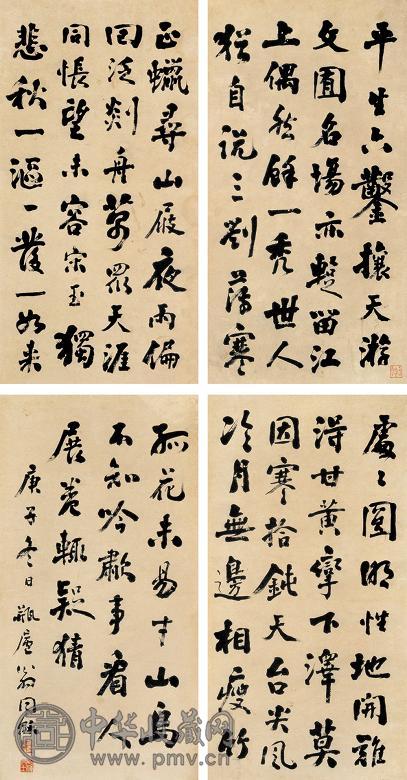 平生六鑿攘天游
文囿名場亦蹔留江
上偶然餘一禿世人
猶自說三劉薄寒
正蠟尋山屐夜雨偏
回泛剡舟萬眾天涯
同悵望未容宋玉獨
悲秋一漚一發一如来
處〻圓明性地開離
淂甘黃下澤莫
因寒拾鈍天台尖風
冷月無邊相瘦竹
孤花未易才山鳥
不知吟歗事看人
展卷輒疑猜
庚子冬日瓶廬翁同龢
中华收藏网
www.pmv.cn